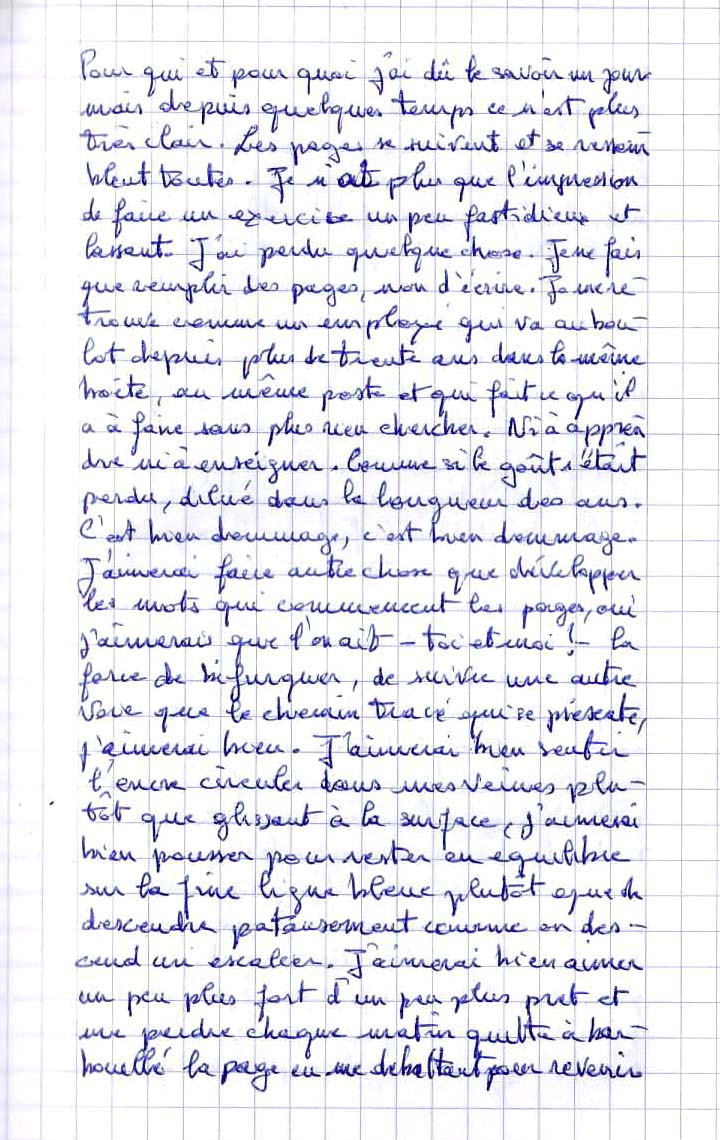 Pour qui et pour quoi j'ai dû le savoir un jour
mais depuis quelques temps ce n'est plus
très clair. Les pages se suivent et se ressem
blent toutes. Je n'ai plus que l'impression
de faire un exercice un peu fastidieux et
lassant. J'ai perdu quelque chose. Je ne fais
que remplir des pages, non d'écrire. Je me re-
trouve comme un employé qui va au bou-
lot depuis plus de trente ans dans la même
boîte, au même poste et qui fait ce qu'il
a à faire sans plus rien chercher. Ni à appren
dre ni à enseigner. Comme si le goût s'était
perdu, dilué dans la longueur des ans.
C'est bien dommage, c'est bien dommage.
J'aimerai faire autre chose que développer
les mots qui commencent les pages, oui
j'aimerais que l'on ait - toi et moi ! - la
force de bifurquer, de suivre une autre
voie que le chemin tracé qui se présente,
j'aimerai bien. J'aimerai bien sentir
l'encre circuler dans mes veines plu-
tôt que glissant à la surface, j'aimerai
bien pousser pour rester en équilibre
sur la fine ligne bleue plutôt que de
descendre pataudement comme on des-
cend un escalier. J'aimerai bien aimer
un peu plus fort d'un peu plus pret et
me perdre chaque matin quitte à bar-
bouillé la page en me débattant pour revenir